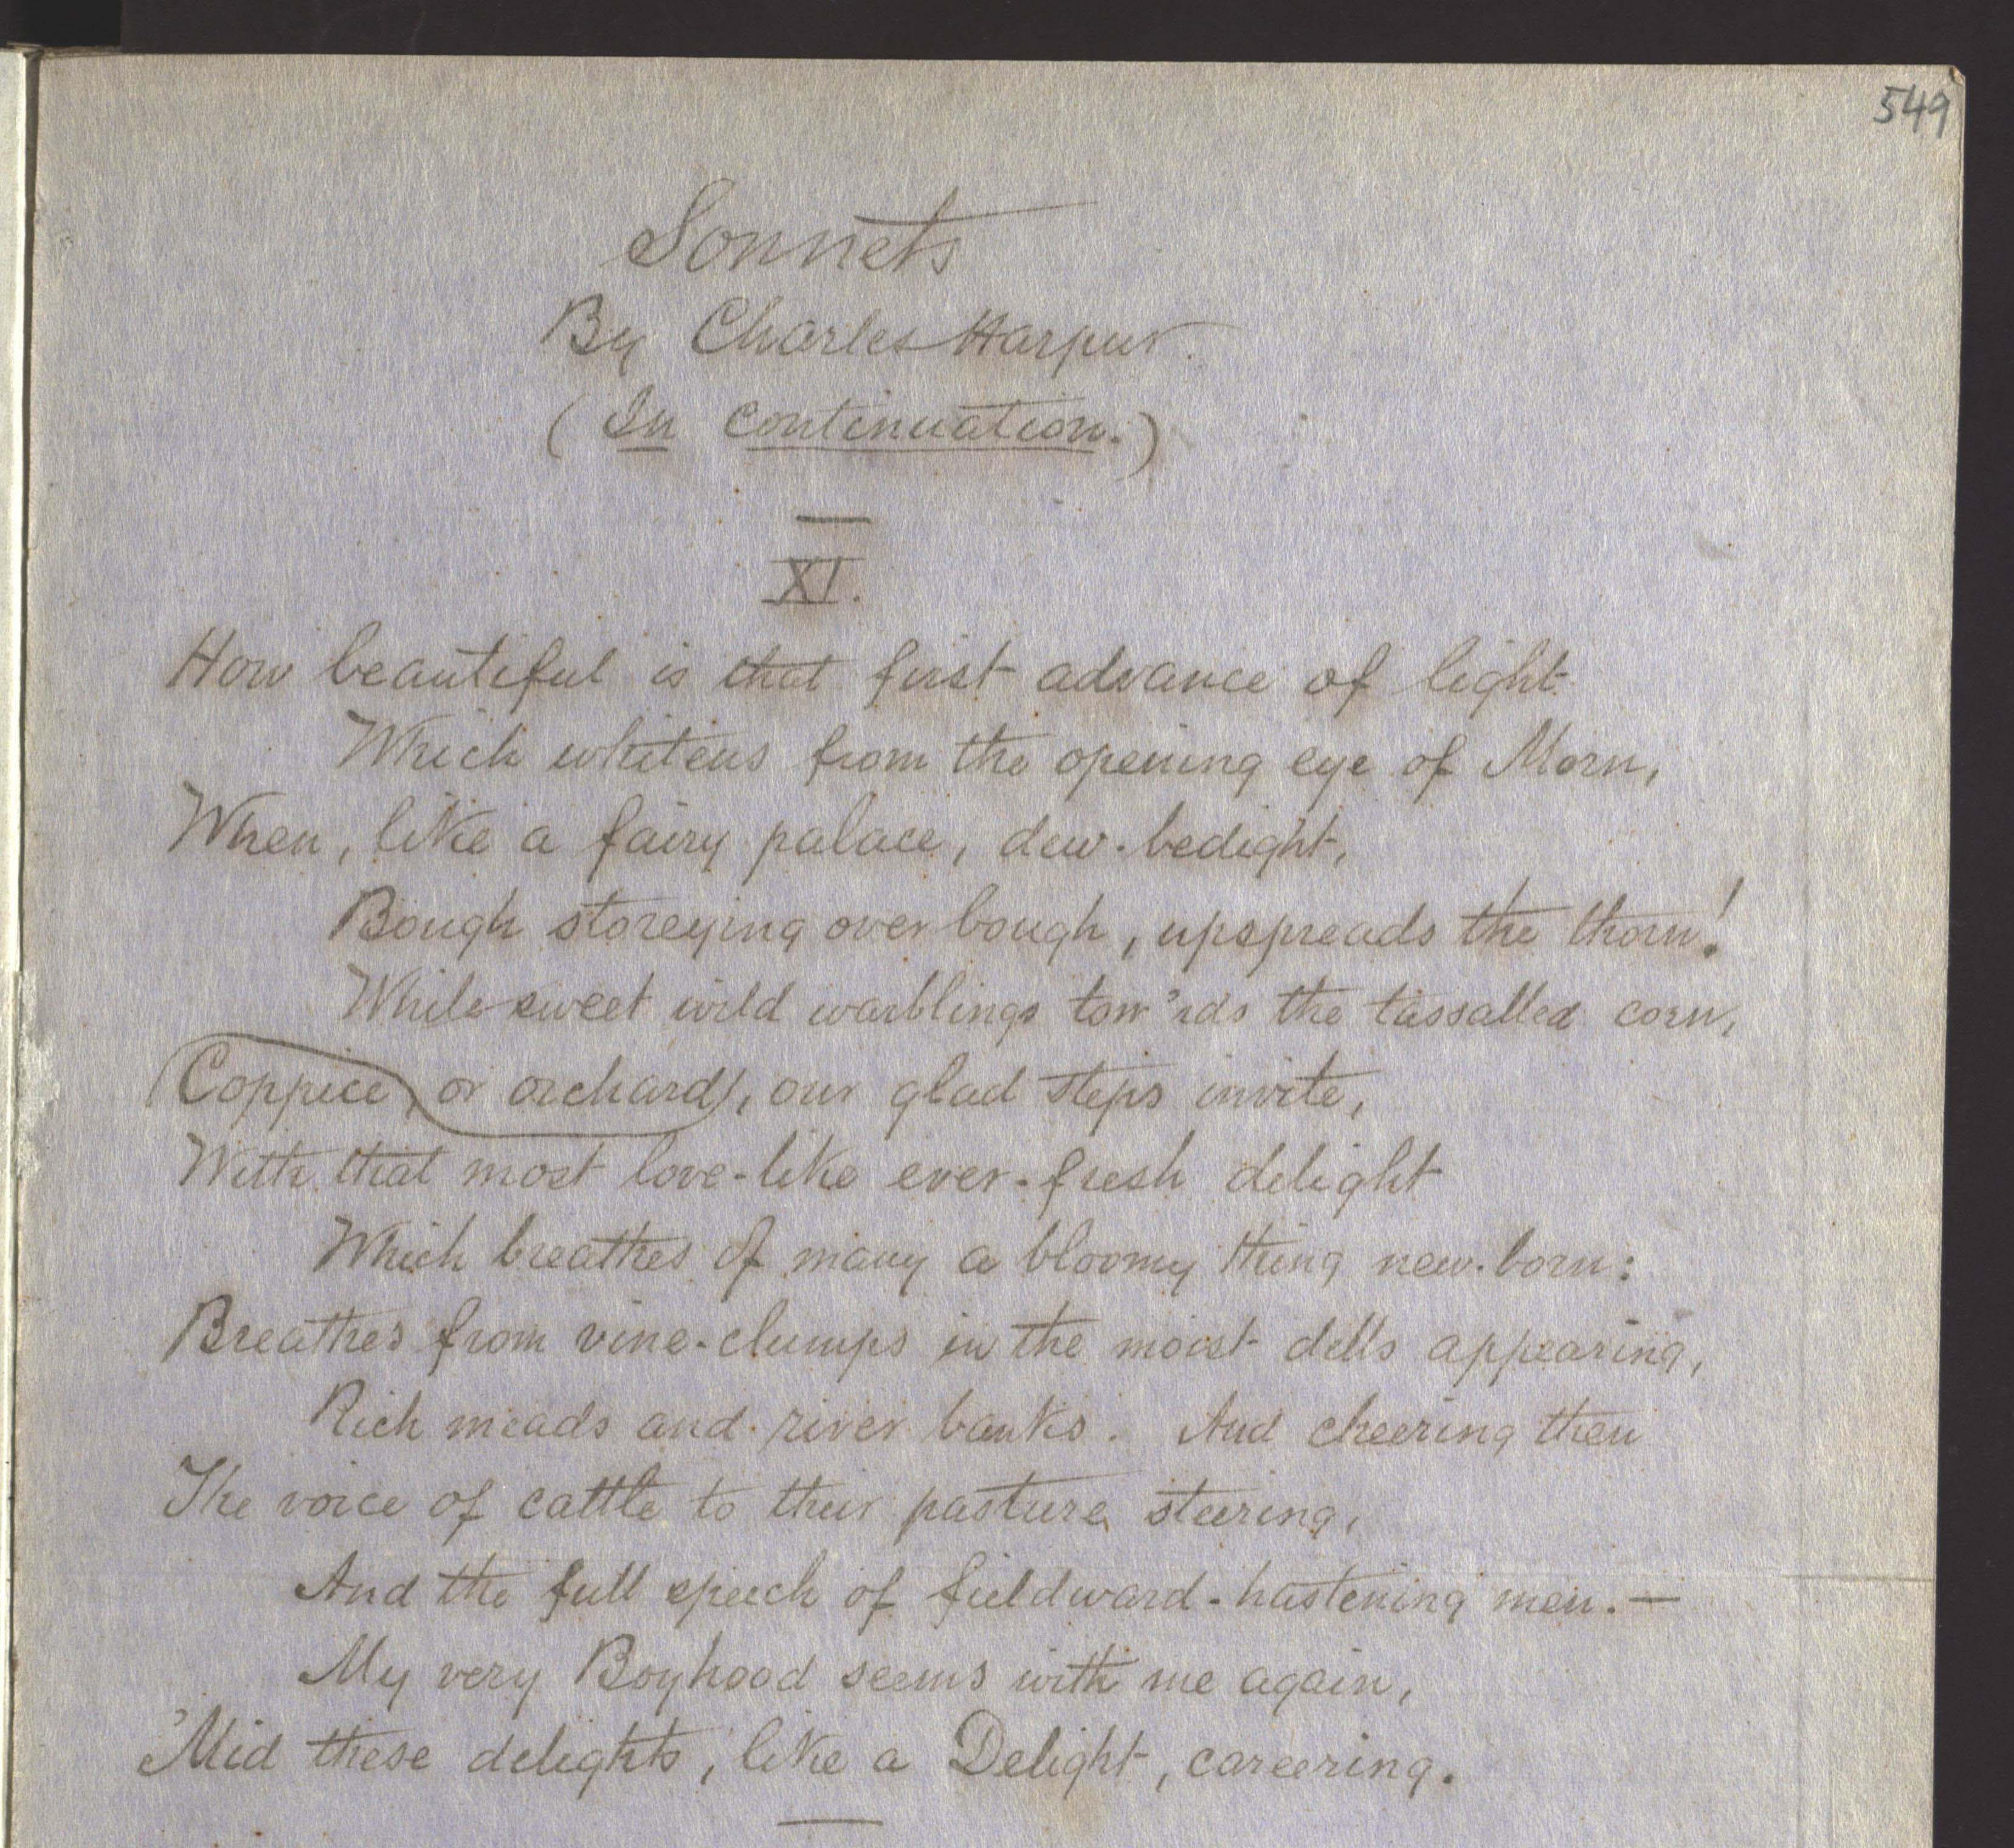 549
Sonnets
By Charles Harpur.
(In continuation.)
XI.
How beautiful is that first advance of light
Which whitens from the opening eye of Morn,
When, like a fairy palace, dew-bedight,
Bough storeying over bough, upspreads the thorn!
While sweet wild warblings tow'rds the tassalled corn,
Coppice, or orchard, our glad steps invite,
With that most love-like ever-fresh delight
Which breathes of many a bloomy thing new-born:
Breathes from vine-clumps in the moist dells appearing,
Rich meads and river banks. And cheering then
The voice of cattle to their pasture steering,
And the full speech of fieldward-hastening men.—
My very Boyhood seems with me again,
'Mid these delights, like a Delight, careering.